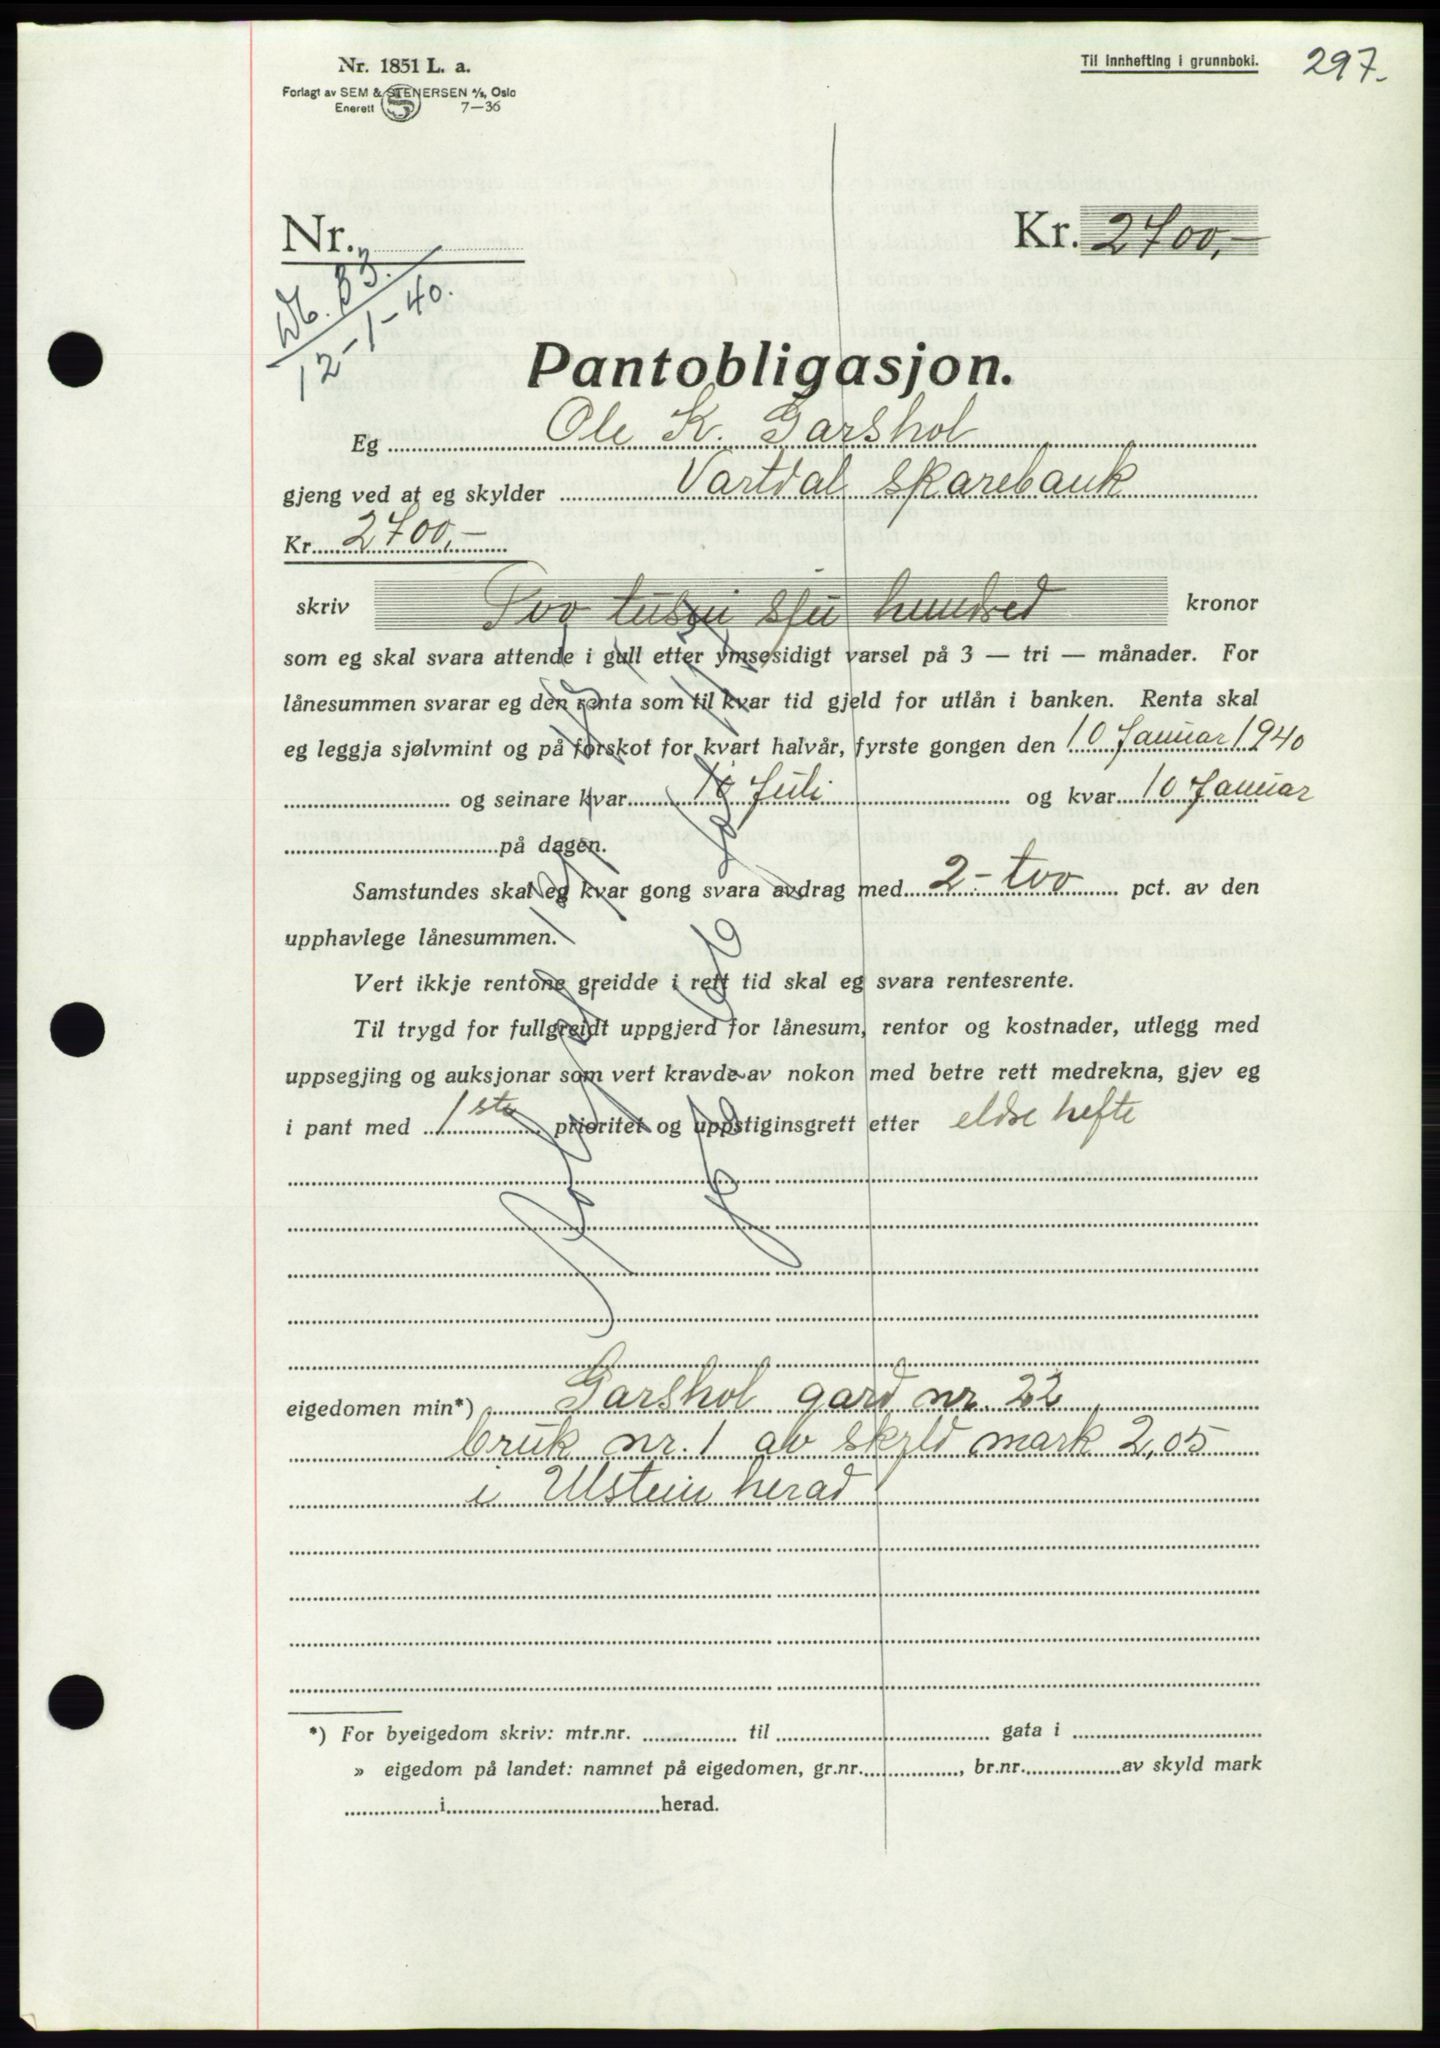 Nr. 1851 L. a.
Forlagt av SEM & STENERSEN A/S, Oslo
Enerett S 7—36
Til innhefting i grunnboki.
297.
Nr.
Kr. 2700,-
Db. 83.
12-1-40.
Pantobligasjon.
Eg Ole K. Garshol
gjeng ved at eg skylder Vartdal sparebank
Kr. 2700,-
skriv Tvo tusen sju hundred kronor
som eg skal svara attende i gull etter ymsesidigt varsel på 3 — tri — månader. For
lånesummen svarar eg den renta som til kvar tid gjeld for utlån i banken. Renta skal
eg leggja sjølvmint og på forskot for kvart halvår, fyrste gongen den 10 Januar 1940
og seinare kvar 10 Juli og kvar 10 Januar
på dagen.
Samstundes skal eg kvar gong svara avdrag med 2 - tvo pct. av den
upphavlege lånesummen.
Vert ikkje rentone greidde i rett tid skal eg svara rentesrente.
Til trygd for fullgreidt uppgjerd for lånesum, rentor og kostnader, utlegg med
uppsegjing og auksjonar som vert kravde av nokon med betre rett medrekna, gjev eg
i pant med 1ste prioritet og uppstiginsgrett etter eldre hefte
eigedomen min*) Garshol gard nr. 22
bruk nr. 1 av skyld mark 2,05
i Ulstein herad
*) For byeigedom skriv: mtr.nr. til gata i
» eigedom på landet: namnet på eigedomen, gr.nr. , br.nr. av skyld mark
i herad.